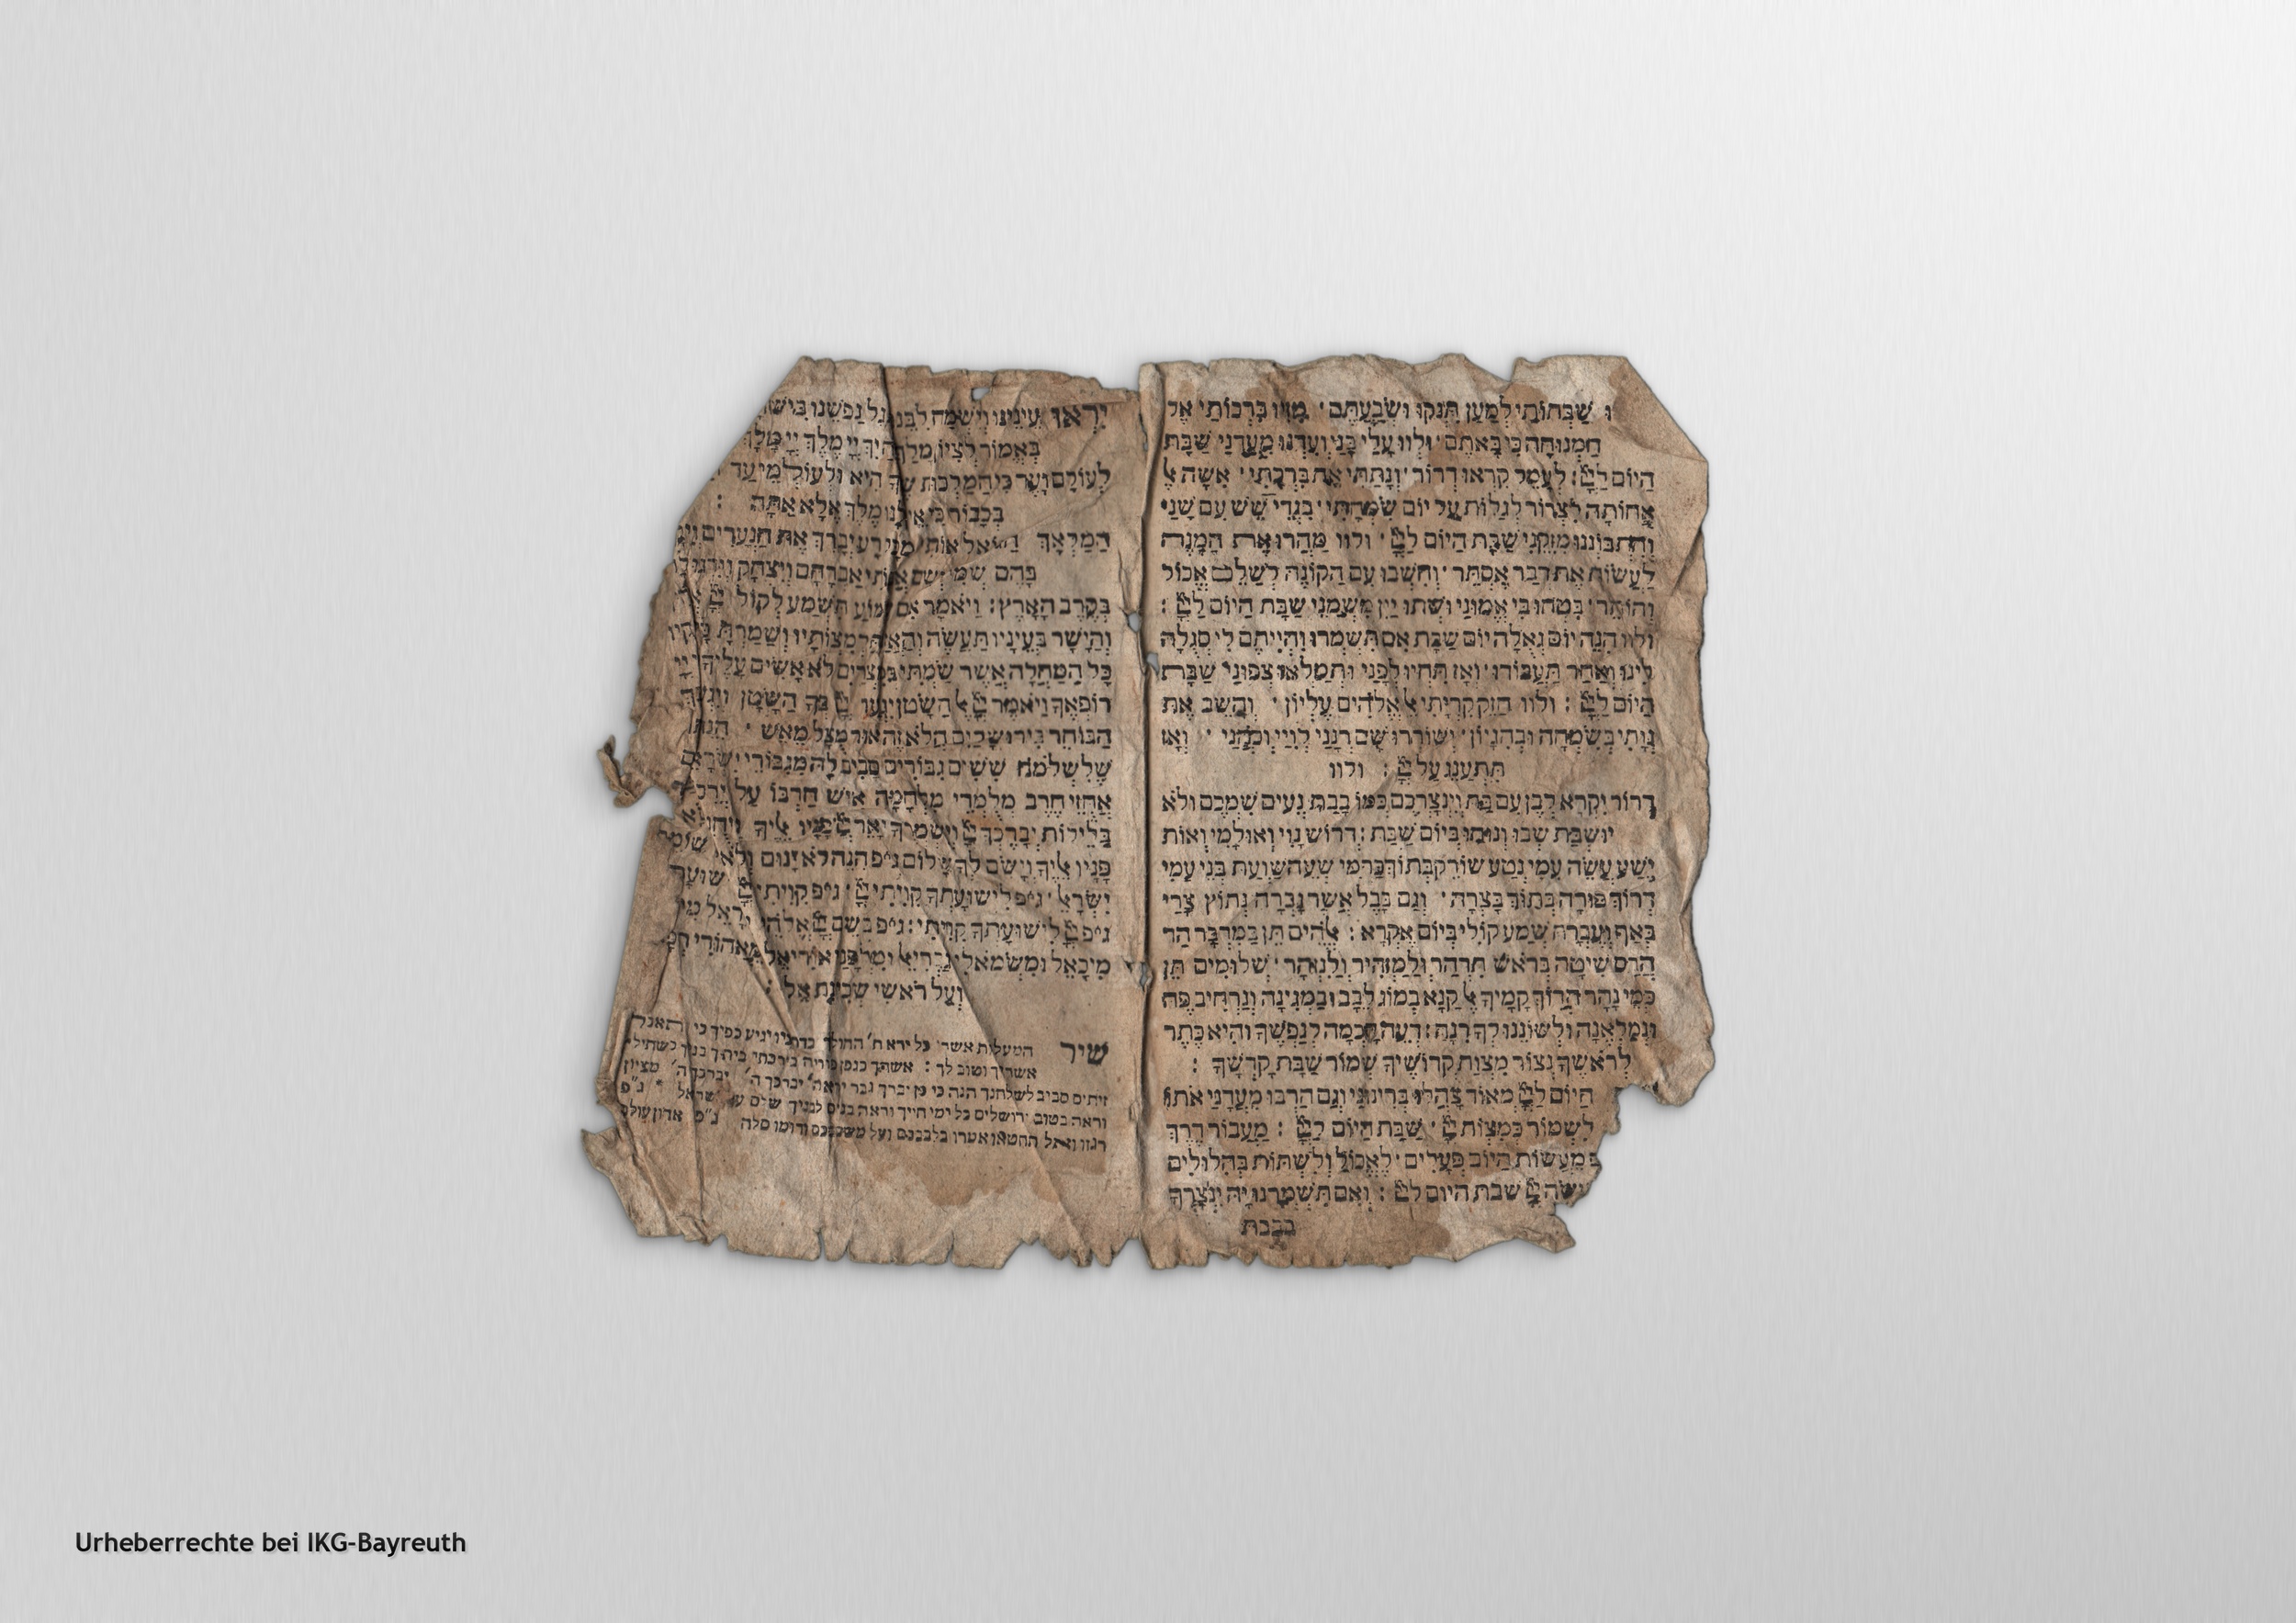 שבחותי למען תנקו ושבעתם · בזיו ברכותי אל
חמנוחה כי באתם · ולוו עלי בני ועדנו מעדני שבת
היום ליי : לעמל קראו דרור · ונתתי את ברכתי · אשה אל
אחותה לצרור לגלות על יום שמחתי · בגדי שש עם שני
והתבוננו מזקני שבת היום ליי · ולוו מהרו את המנה
לעשות את דבר אסתר · וחשבו עם הקונה לשלם אכול
והותר · בטחו בי אמוני ושתו יין משמני שבת היום ליי :
ולוו הנה יום גאלה יום שבת אם תשמרו והייתם לי סגלה
לינו ואחר תעבורו · ואז תחיו לפני ותמלאו צפוני שבת
היום ליי : ולוו חזק קריתי אל אלהים עליון · והשב את
נויתי בשמחה ובהגיון · ישוררו שם רנני לויי וכהני · ואז
תתענג על יי : ולוו
דרור יקרא לבן עם בת וינצרכם כמו בבת נעים שמכם ולא
יושבת שבו ונוחו ביום שבת : דרוש נוי ואולמי ואות
ישע עשה עמי נטע שורק בתוך כרמי שעה שועת בני עמי
דרוך פורה בתוך בצרה · וגם בבל אשר גברה נתוץ צרי
באף ועברה שמע קולי ביום אקרא : אלהים תן במדבר הר
הדס שיטה בראש תדהר ולמזהיר ולנזהר · שלומים תן
כמי נהר הדוך קמיך אל קנא במוג לבב ובמגינה ונרחיב פה
ונמלאנה ולשוננו לך רנה : דעה חכמה לנפשך והיא כתר
לראשך נצור מצות קדושיך שמור שבת קדשך :
היום ליי מאוד צהלו ברינוני וגם הרבו מעדני אתו
לשמור כמצות יי · שבת היום ליי : מעבור דרך
מעשות היום פעלים · לאכול ולשתות בהלולים
שבת היום ליי : ואם תשמרנו יה ינצרך
בבבת
יראו עינינו וישמח לבנו ותגל נפשנו
באמור לציון מלך יי מלך יי מלך
לעולם ועד כי המלכות שלך היא ולעולמי עד
בכבוד כי אין לנו מלך אלא אתה :
המלאך הגואל אותי מכל רע יברך את הנערים
בהם שמי ושם אבותי אברהם ויצחק וידגו
בקרב הארץ : ויאמר אם שמוע תשמע לקול יי
והישר בעיניו תעשה והאזנת למצותיו ושמרת
כל המחלה אשר שמתי במצרים לא אשים עליך
רופאך ויאמר יי אל השטן יגער יי בך השטן ויגער
הבוחר בירושלים הלא זה אוד מצל מאש · הנה
שלשלמה ששים גבורים סביב לה מגבורי ישראל
אחזי חרב מלמדי מלחמה איש חרבו על ירכו
בלילות יברכך יי וישמרך יאר יי פניו אליך
פניו אליך וישם לך שלום ג״פ הנה לא ינום ולא
ישראל · ג״פ לישועתך קויתי יי · ג״פ קויתי יי
ג״פ יי לישועתך קויתי : ג״פ בשם יי אלהי ישראל
מיכאל ומשמאלי גבריאל ומלפני אוריאל מאחורי
ועל ראשי שכינת אל :
שיר המעלות אשרי כל ירא ה׳ ההולך בדרכיו יגיע כפיך כי תאכל
אשריך וטוב לך : אשתך כגפן פוריה בירכתי ביתך בניך כשתילי
זיתים סביב לשלחנך הנה כי כן יברך גבר ירא ה׳ יברכך ה׳ מציון
וראה בטוב ירושלים כל ימי חייך וראה בנים לבניך שלום על ישראל · ג״פ
רגזו ואל תחטאו אמרו בלבבכם ועל משכבכם ודומו סלה ג״פ אדון עולם
Urheberrechte bei IKG-Bayreuth